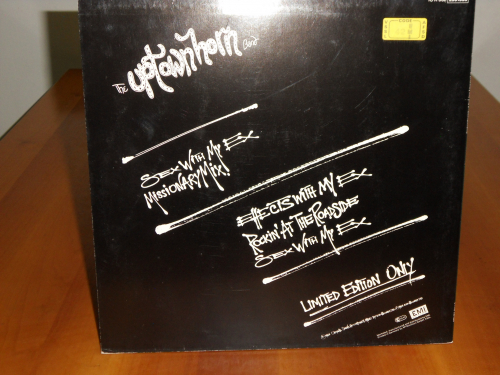 The uptownhorn Band
Sex With My Ex
Missionary Mix!
Effects With My Ex
Rockin' At The Roadside
Sex With My Ex
Limited Edition Only
EMI